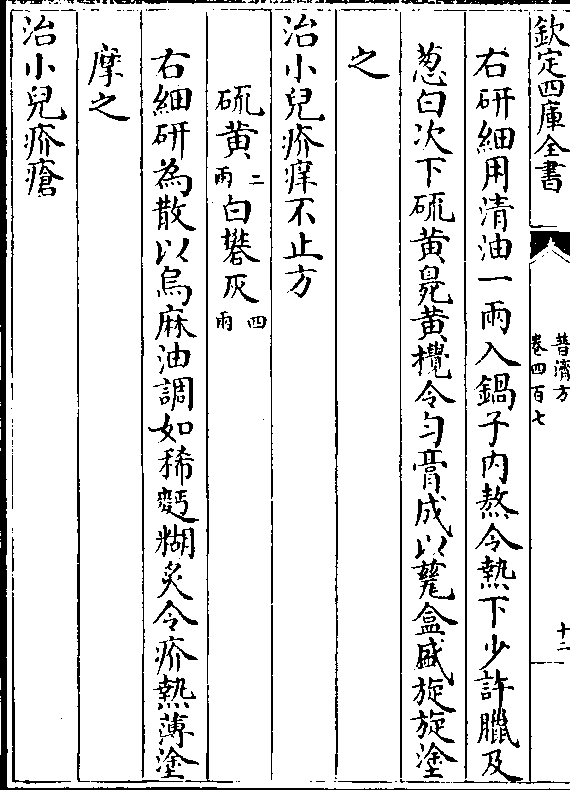 欽定四庫全書
普濟方
卷四百七
十二
右研細用清油一兩入鍋子内熬令熱下少許臘及
葱白次下硫黄㲋黄攪令匀膏成以甆盒盛旋旋塗
之
治小兒疥痒不止方
硫黄二兩白礬灰四兩
右細研為散以烏麻油調如稀麫糊炙令疥熱薄塗
摩之
治小兒疥瘡